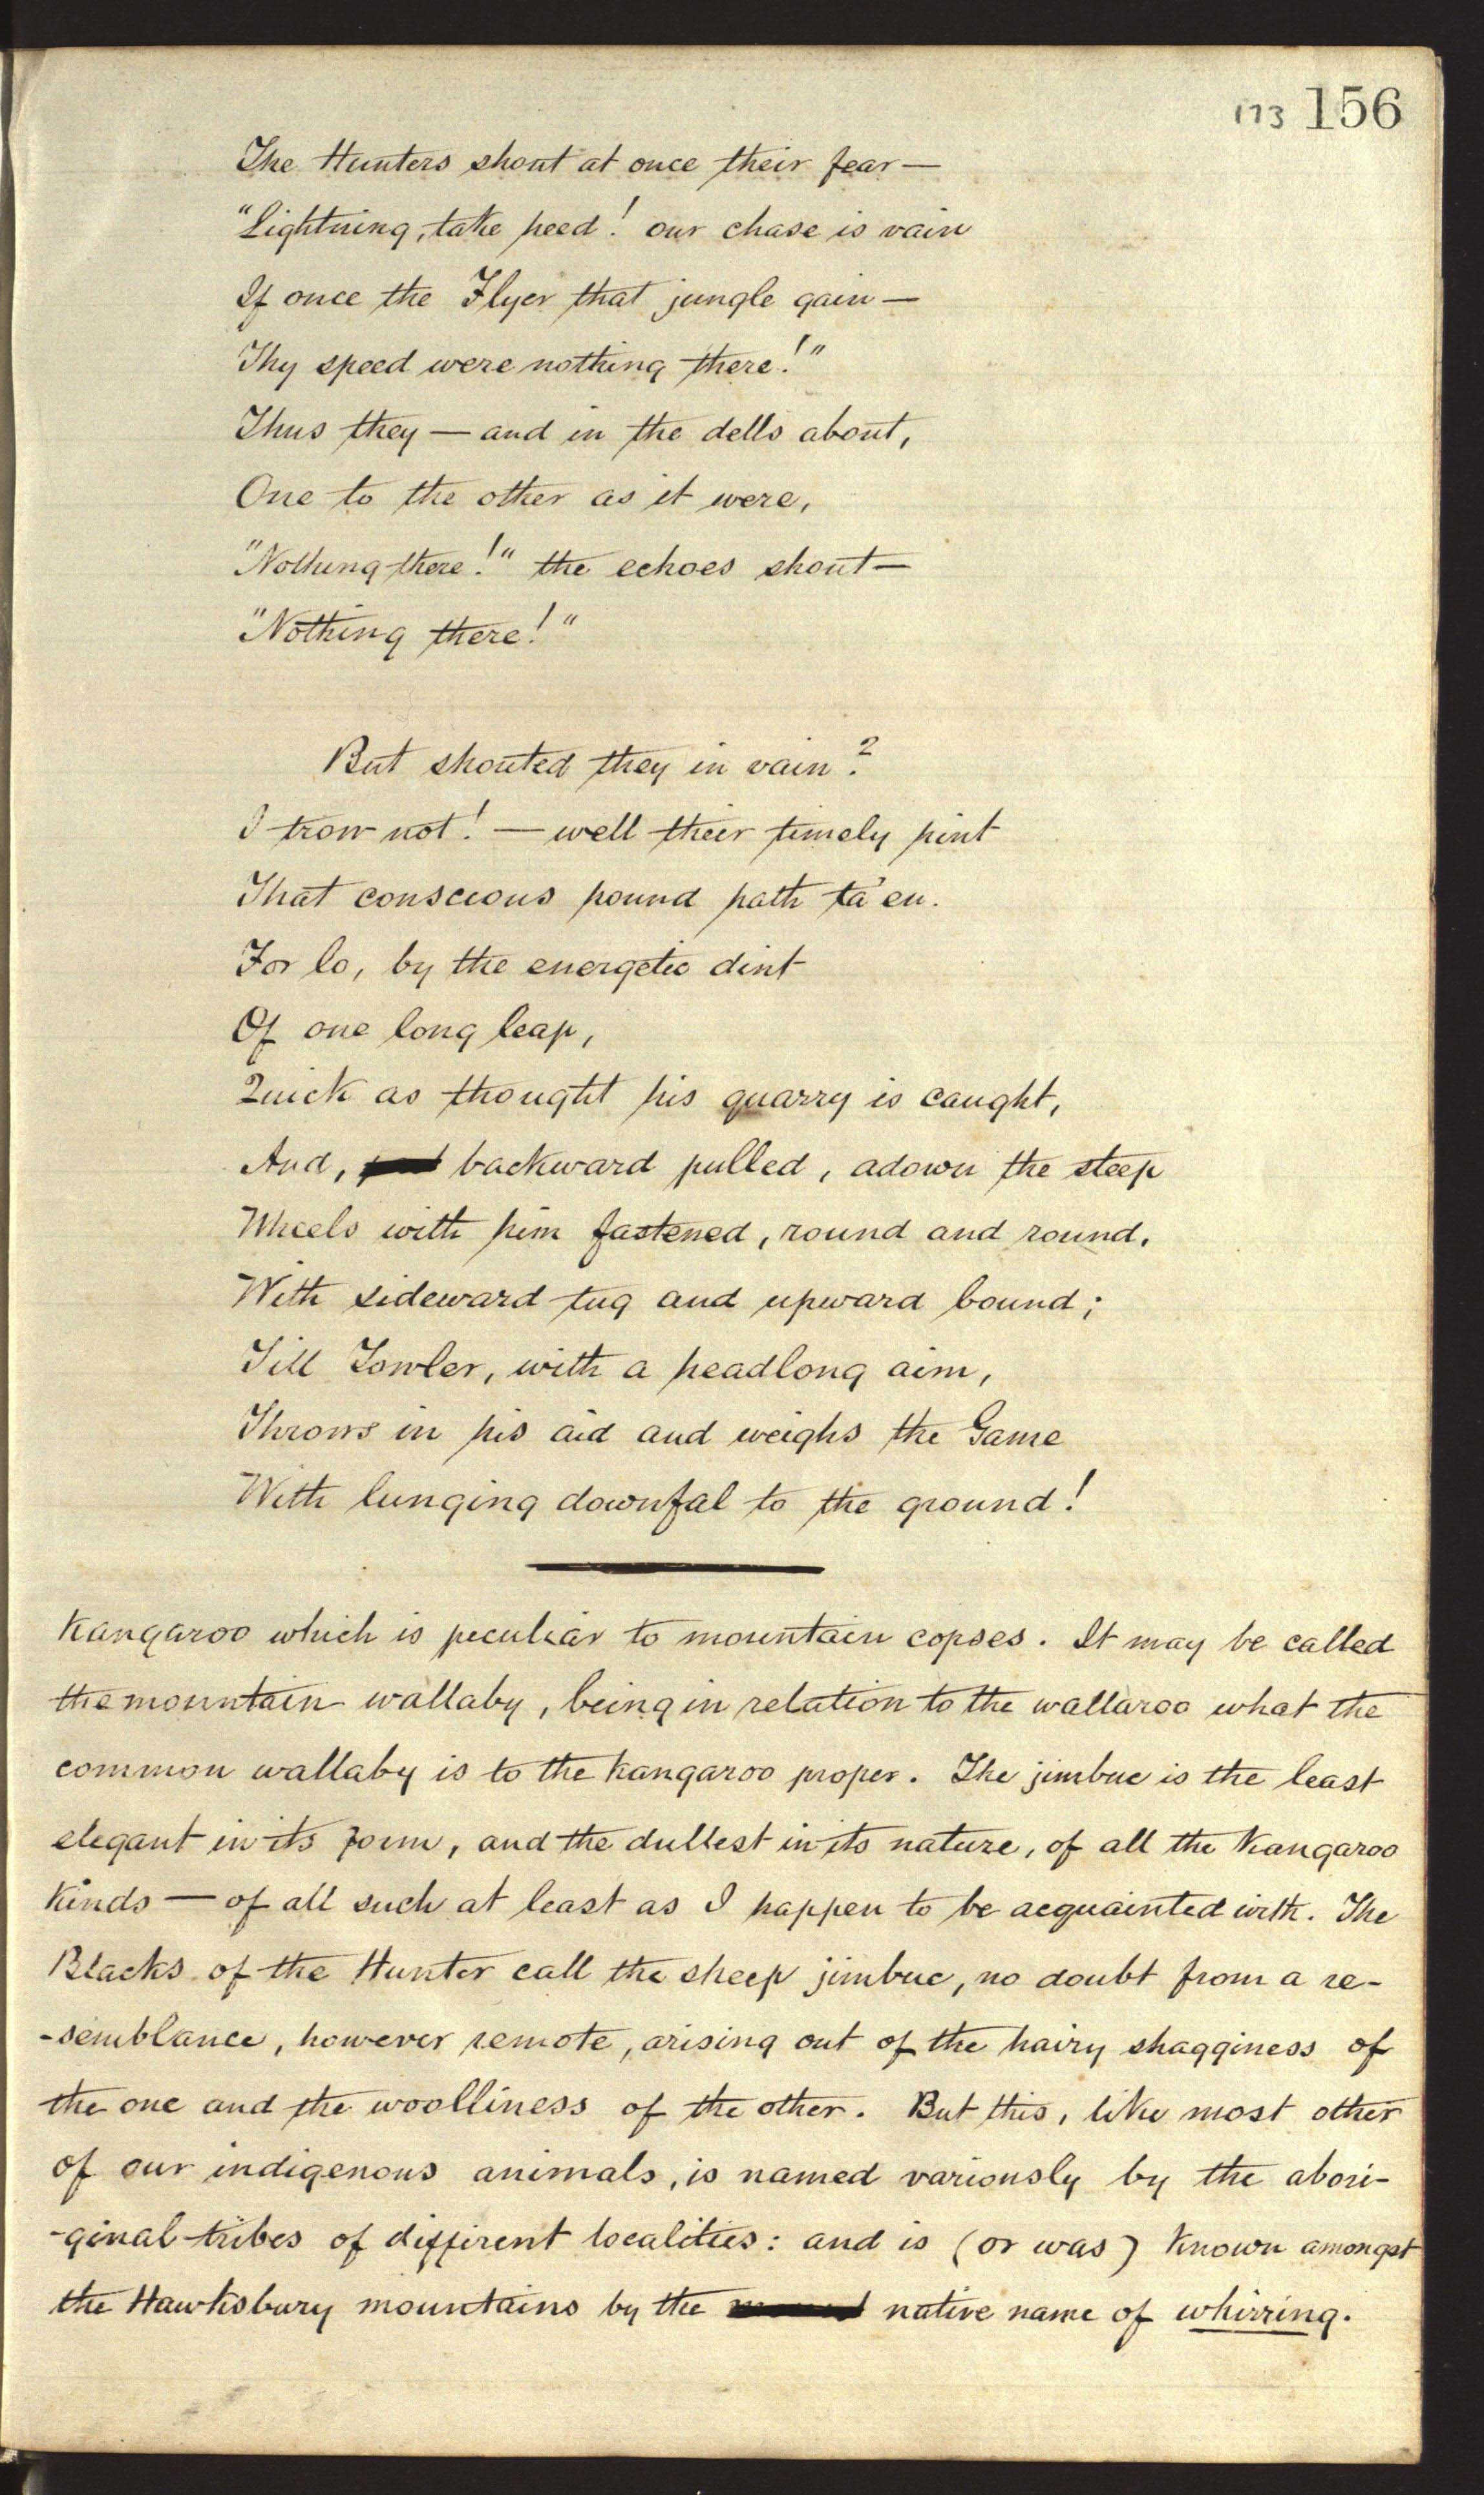 173 156
The Hunters shout at once their fear —
"Lightning, take heed! our chase is vain
If once the Flyer that jungle gain —
Thy speed were nothing there!"
Thus they — and in the dells about,
One to the other as it were,
"Nothing there!" the echoes shout —
"Nothing there!"
But shouted they in vain?
I trow not! — well their timely hint
That conscious hound hath ta'en.
For lo, by the energetic dint
Of one long leap,
Quick as thought his quarry is caught,
And, backward pulled, adown the steep
Wheels with him fastened, round and round,
With sideward tug and upward bound;
Till Towler, with a headlong aim,
Throws in his aid and weighs the Game
With lunging downfal to the ground!
Kangaroo which is peculiar to mountain copses. It may be called
the mountain wallaby, being in relation to the wallaroo what the
common wallaby is to the Kangaroo proper. The jimbuc is the least
elegant in its form, and the dullest in its nature, of all the Kangaroo
Kinds — of all such at least as I happen to be acquainted with. The
Blacks of the Hunter call the sheep jimbuc, no doubt from a re-
-semblance, however remote, arising out of the hairy shagginess of
the one and the woolliness of the other. But this, like most other
of our indigenous animals, is named variously by the abori-
-ginal tribes of different localities: and is (or was) Known amongst
the Hawksbury mountains by the native name of whirring.